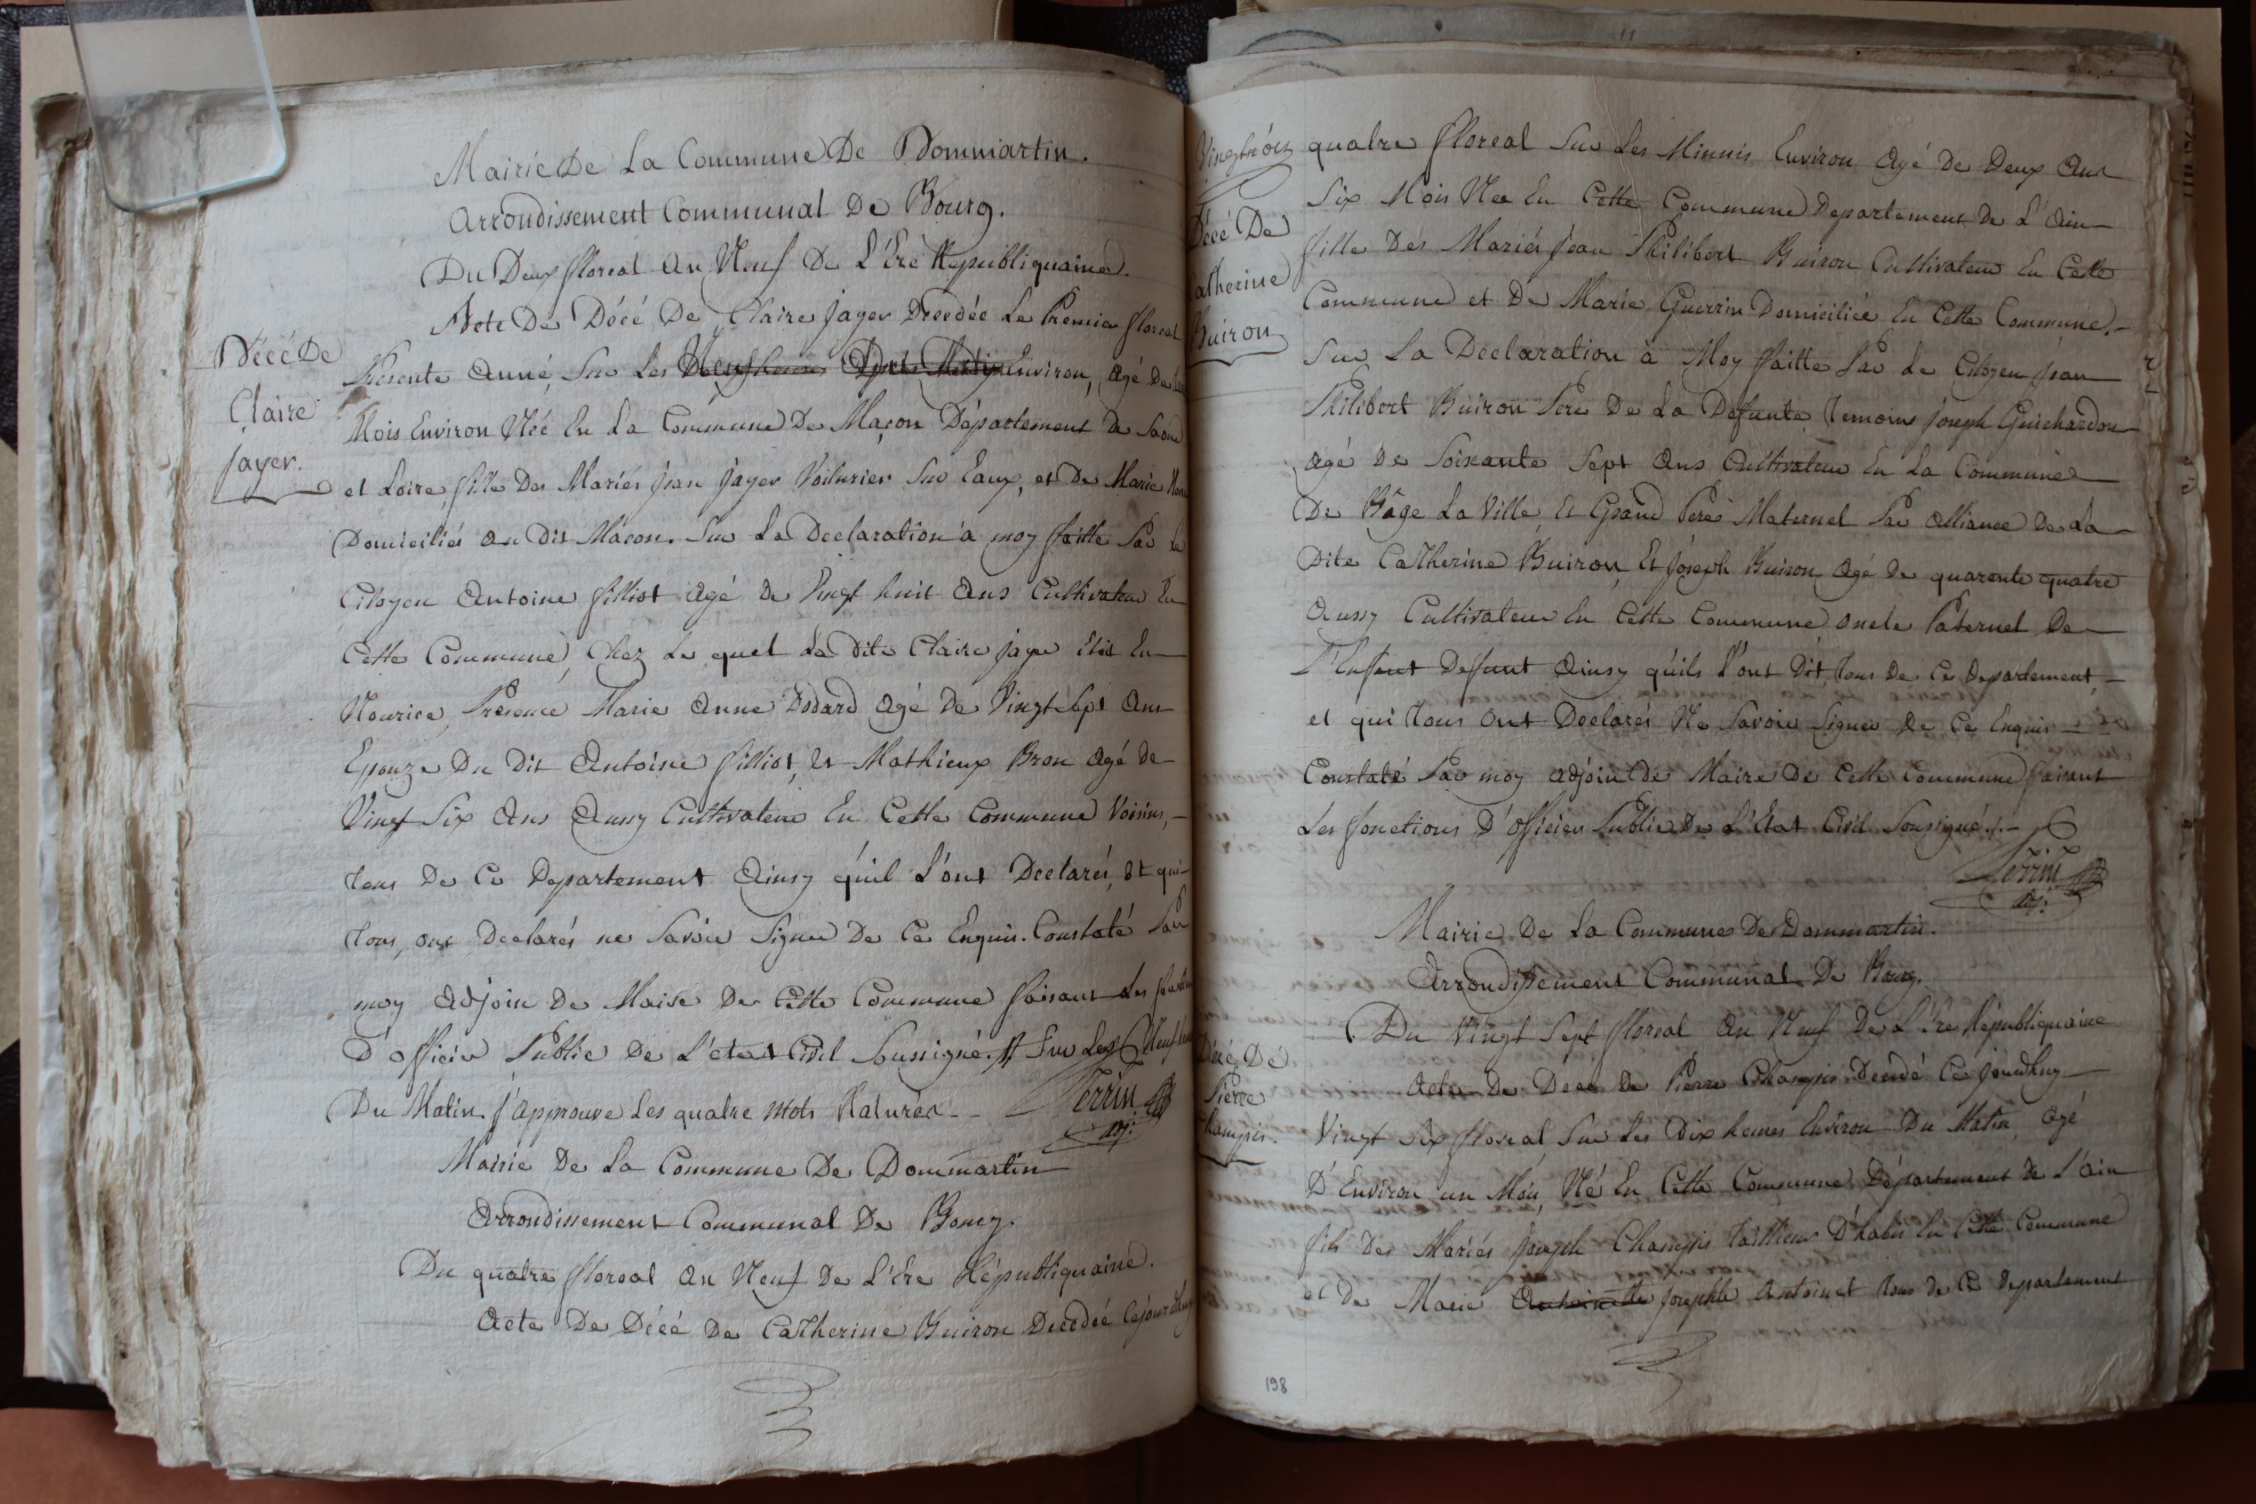 Mairie De La Commune De Dommartin.
Arrondissement Communal De Bourg.
Du Deux floreal an Neuf De L'Ere Republiquaine.
Acte De Décé De Claire jayer Decedée Le Premier floreal
Décé De
Claire
jayer.
Presente Anné, Sur Les Neuf heures Environ, Agé De
Mois Environ Née En La Commune De Maçon Département De Saone
et Loire, fille Des Mariés jean jayer Voiturier Sur Eaux, et De Marie
Domiciliés au Dit Macon. Sur La Declaration à moy faitte Par le
Citoyen Antoine filliot agé de Vingt huit Ans Cultivateur En
Cette Commune, Chez Le quel La Dite Claire jayer Etoit En
Nourice, Présence Marie Anne Bodard agé De Vingt Sept Ans
Epouze Du Dit Antoine filliot, et Mathieux Bron Agé De
Vingt Six Ans Aussy Cultivateur En Cette Commune Voisins,
tous De Ce Departement Ainsy qu'il L'ont Declarés, Et qui
tous, ont Declarés ne Savoir Signer De Ce Enquis. Constaté Par
moy Adjoin De Maire De Cette Commune faisant Les
D'officier Public De L'etat Civil Soussigné. # Sur Les Neuf
Du Matin. j'approuve Les quatre mots Raturés
Perrin
adj:
Mairie De La Commune De Dommartin
Arrondissement Communal De Bourg.
Du quatre floreal An Neuf De L'Ere Républiquaine.
Acte De Décé De Catherine Buiron Décédée Cejourdhuy
Vingtrois
Décé De
Catherine
Buiron
quatre floreal Sur Les Minuis Environ Agé De Deux Ans
Six Mois Née En Cette Commune Departement De L'Ain
fille Des Mariés jean Philibert Buiron Cultivateur En Cette
Commune et De Marie Guerrin Domiciliée En Cette Commune.
Sur La Declaration à Moy faitte Par Le Citoyen jean
Philibert Buiron Pere De La Defunte, temoins joseph Guichardon
agé De Soixante Sept Ans Cultivateur En La Commune
De Bâge La Ville, Et Grand Pere Maternel Par Alliance De La
Dite Catherine Buiron, Et joseph Buiron Agé De quarente quatre
Aussy Cultivateur En Cette Commune oncle Paternel De
L'Enfant Defunt Ainsy qu'ils L'ont Dit, tous De Ce Departement,
et qui tous ont Declarés Ne Savoir Signer De Ce Enquis
Constaté Par moy adjoint de Maire De Cette Commune faisant
Les fonctions D'officier Public De L'Etat Civil Sousigné.
Perrin
adj:
Mairie De La Commune De Dommartin.
Arrondissement Communal De Bourg.
Du Vingt Sept floreal An Neuf De L'Ere Républiquaine
Décé De
Pierre
Champis.
Acte De Décé De Pierre Champis Decedé Ce jourdhuy
Vingt Six floreal Sur Les Dix heures Environ Du Matin, agé
D'Environ un Mois, Né En Cette Commune Département De L'Ain
fils Des Mariés joseph Champis tailleur D'habis En Cette Commune
et De Marie Antoinette josephte Antoinet tous de Ce Departement
198